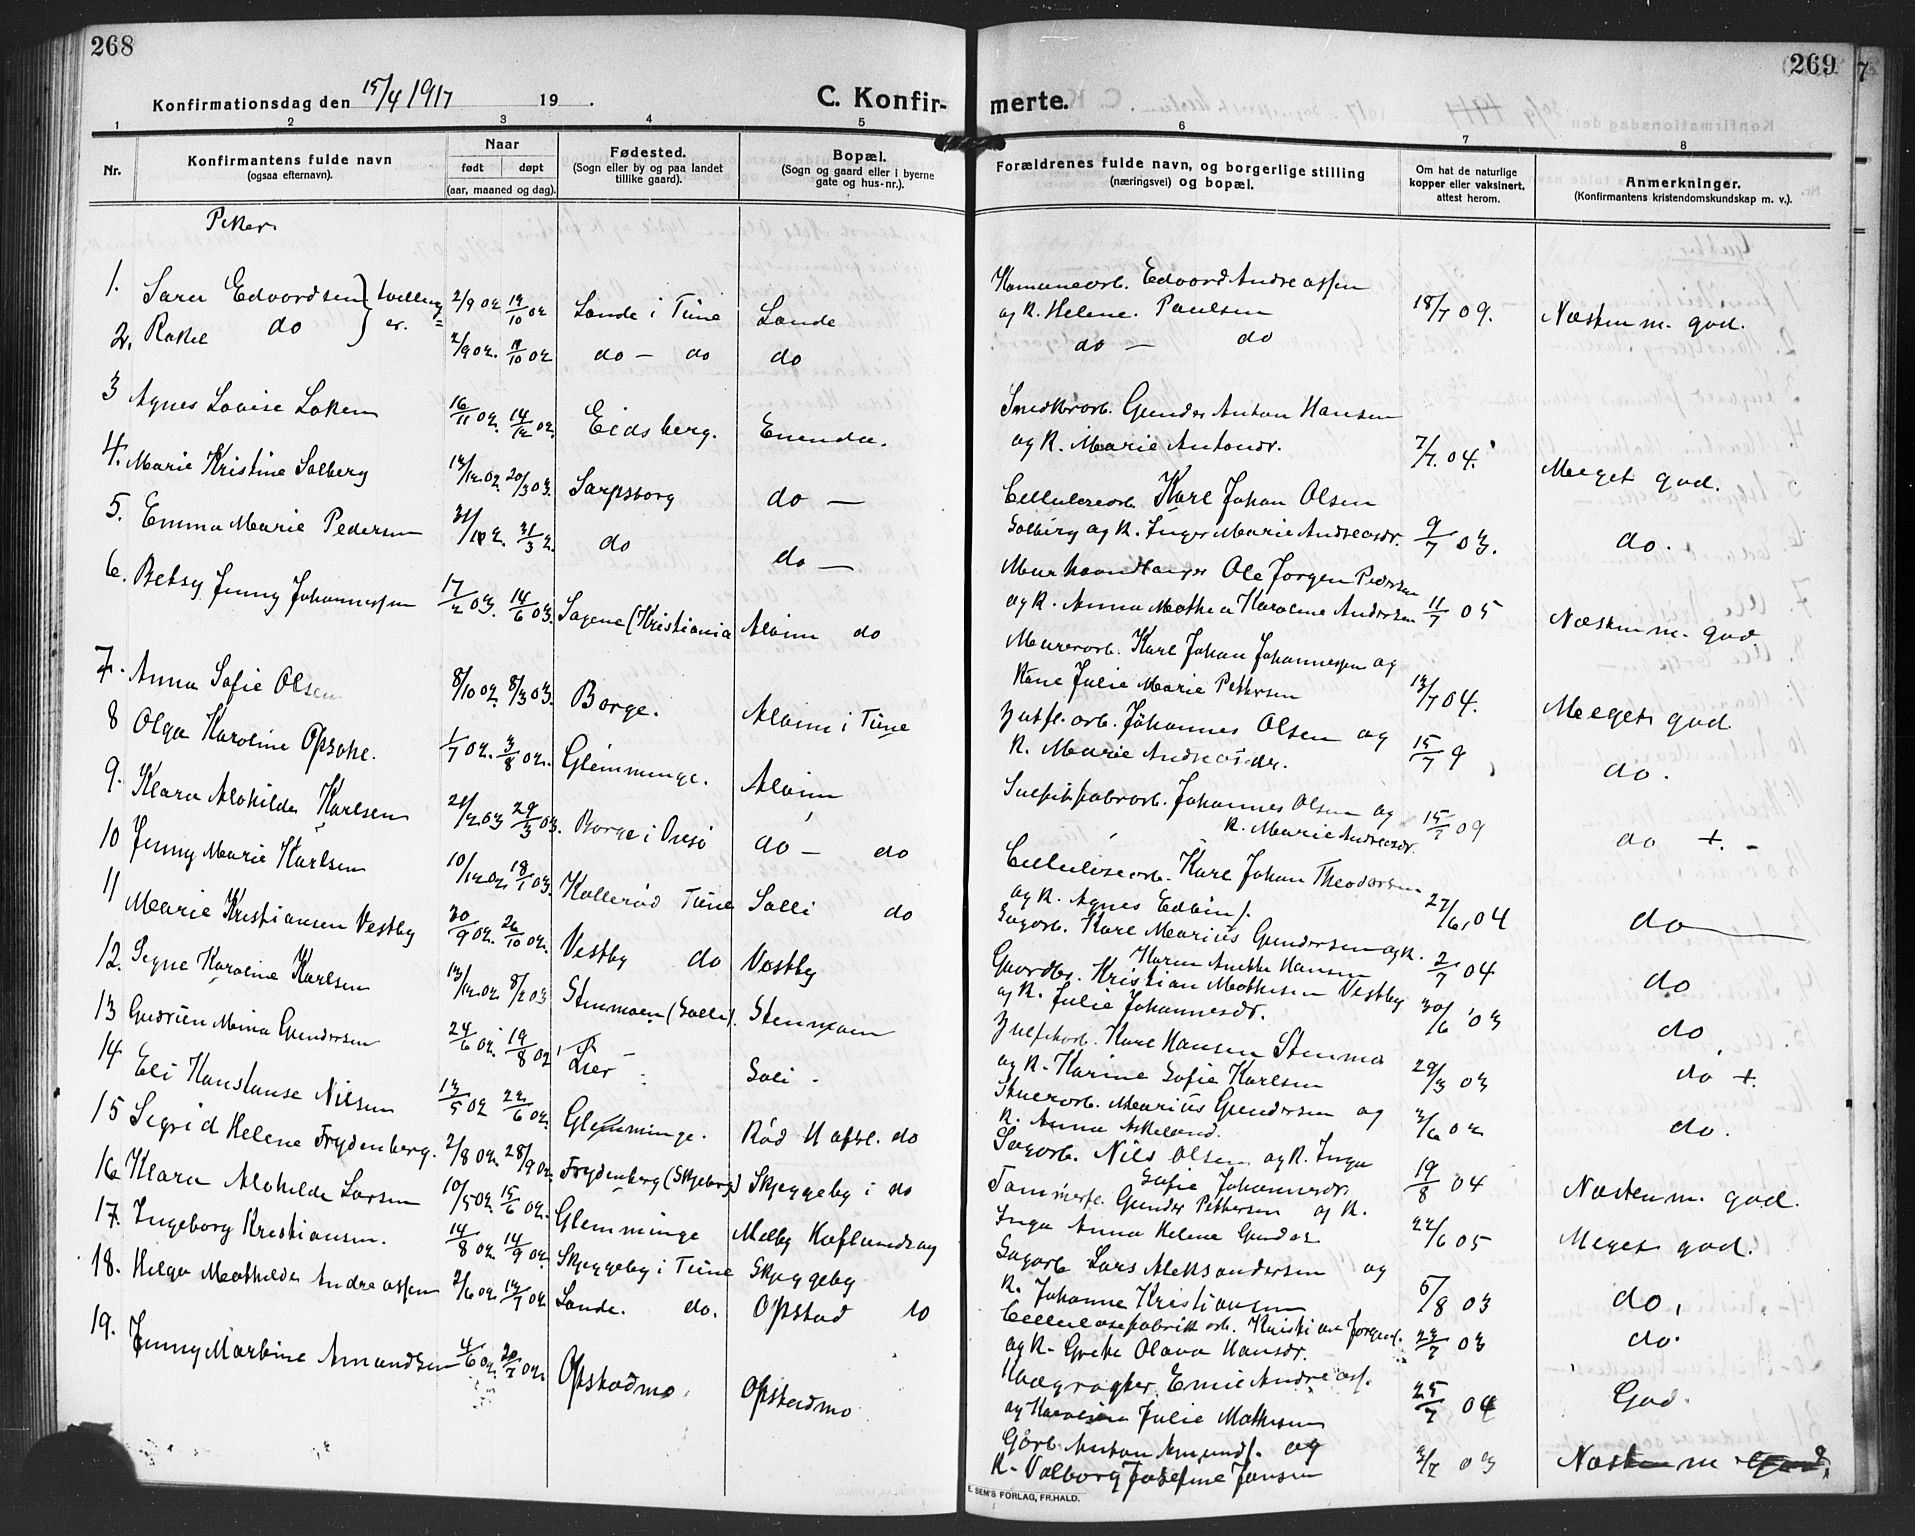 268
Konfirmationsdag den 15/4 1917 19 .
C. Konfir-
1 2 3 4 5
Nr.
Konfirmantens fulde navn
(ogsaa efternavn).
Naar
født døpt
(aar, maaned og dag).
Fødested.
(Sogn eller by og paa landet
tillike gaard).
Bopæl.
(Sogn og gaard eller i byerne
gate og hus-nr.).
Piker
1. Sara Edvardsen 2/9 02 19/10 02 Sande i Tune Sande
2. Rakel do 2/9 02. 19/10 02 do — do do
3 Agnes Lovise Løken 16/11 02. 14/12 02. Eidsberg. Enenda.
4. Marie Kristine Solberg 14/12 02 20/3 03. Sarpsborg do —
5. Emma Marie Pedersen 31/3 2. do do —
6. Betsy Jenny Johannessen 17/2 03. 14/6 03. Sagene (Kristiania Alvim do
7. Anna Sofie Olsen 8/10 02. 8/3 03. Borge. Alvim i Tune
8 Olga Karoline Opsahl. 1/7 02. 3/8 02. Glemminge. Alvim
9. Klara Alvhilde Karlsen 21/2 03 29/3 03. Borge i Onsø do — do
10 Jenny Marie Karlsen 10/12 02 18/1 03. Kallerød Tune Solli do
11 Marie Kristiansen Vestby 30/9 02. 26/10 02. Vestby do Vestby
12. Signe Karoline Karlsen 13/12 02. 8/2 03 Stenmoen (Solli). Stenmoen
13 Gudrun Mina Gundersen 24/6 02. 19/8 02 Lier Soli -
14 Eli Konstanse Nilsen 13/5 02 22/6 02. Glemminge. Rød Hafsl. do
15 Sigrid Helene Frydenberg. 2/8 02. 28/9 02. Frydenberg (Skjeberg) Skjeggeby i do
16 Klara Alvhilde Larsen 10/5 02. 15/6 02. Glemminge Melby Haflundsøy
17. Ingeborg Kristiansen. 14/8 02. 14/9 02. Skjeggeby i Tune Skjeggeby
18. Helga Mathilde Andreassen 2/6 02 14/7 02. Sande. do. Opstad do
19. Jenny Marbine Amundsen 4/6 02. 20/7 02. Opstadmo. Opstadmo
269
merte.
6 7 8
Forældrenes fulde navn, og borgerlige stilling
(næringsvei) og bopæl.
Om hat de naturlige
kopper eller vaksinert,
attest herom.
Anmerkninger.
(Konfirmantens kristendomskundskap m. v.).
Komunearb. Edvard Andreassen
og K. Helene. Paulsen 18/7 09. Næsten m. god.
do — do
Smedarb. Gunder Anton Hansen
og K. Marie Antondr. 7/7. 04. Meget god.
Cellulosearb. Karl Johan Olsen
Solberg og K. Inger Marie Andreasdr. 9/7 03. do.
Murhaandlanger Ole Jørgen Pedersen
og K. Anna Mathea Karoline Andersen 11/7 05 Næsten m. god.
Murerarb. Karl Johan Johannessen og
Kone Julie Marie Pettersen 13/7 04. Meget god
Johannes Olsen og
K. Marie Andreasdr. 15/7 9 do.
Sulfitfabarb. Johannes Olsen og
K. Marie Andreasdr. 15/7 09 do +. -
Cellulosearb. Karl Johan Theodorsen
og K. Agnes Edvinf. 27/6. 04 do
Sagarb. Karl Marius Gundersen og K.
Karen Anette Hansen 2/7 04 do
Gaardbr. Kristian Mathisen Vestby
og K. Julie Johannesdr. 30/6 03 do
Karl Hansen Stenmo
og K. Karine Sofie Karlsen 29/3 03 do +.
Stuerarb. Marius Gundersen og
K. Anna Askeland. 3/6 02 do.
Sagarb. Nils Olsen og K. Inga
Sofie Johannesdr. 19/8 04 Næsten m. god.
Tømmerfl. Gunder Pettersen og K.
Inga Anna Helene 22/6 05 Meget god.
Sagarb Lars Aleksandersen og
K. Johanne Kristiansen 5/8 03 do,
Cellulosefabrikkarb. Kristian Jørgens.
og K. Grete Olava Hansdr. 23/7 03 do.
Emil Andreass.
og Julie Mathisen 25/7 04 God.
Anton Amunds. og
K. Valborg Josefine Jansen 3/7 03 Næsten m God.
E. SEM'S FORLAG, FR.HALD.